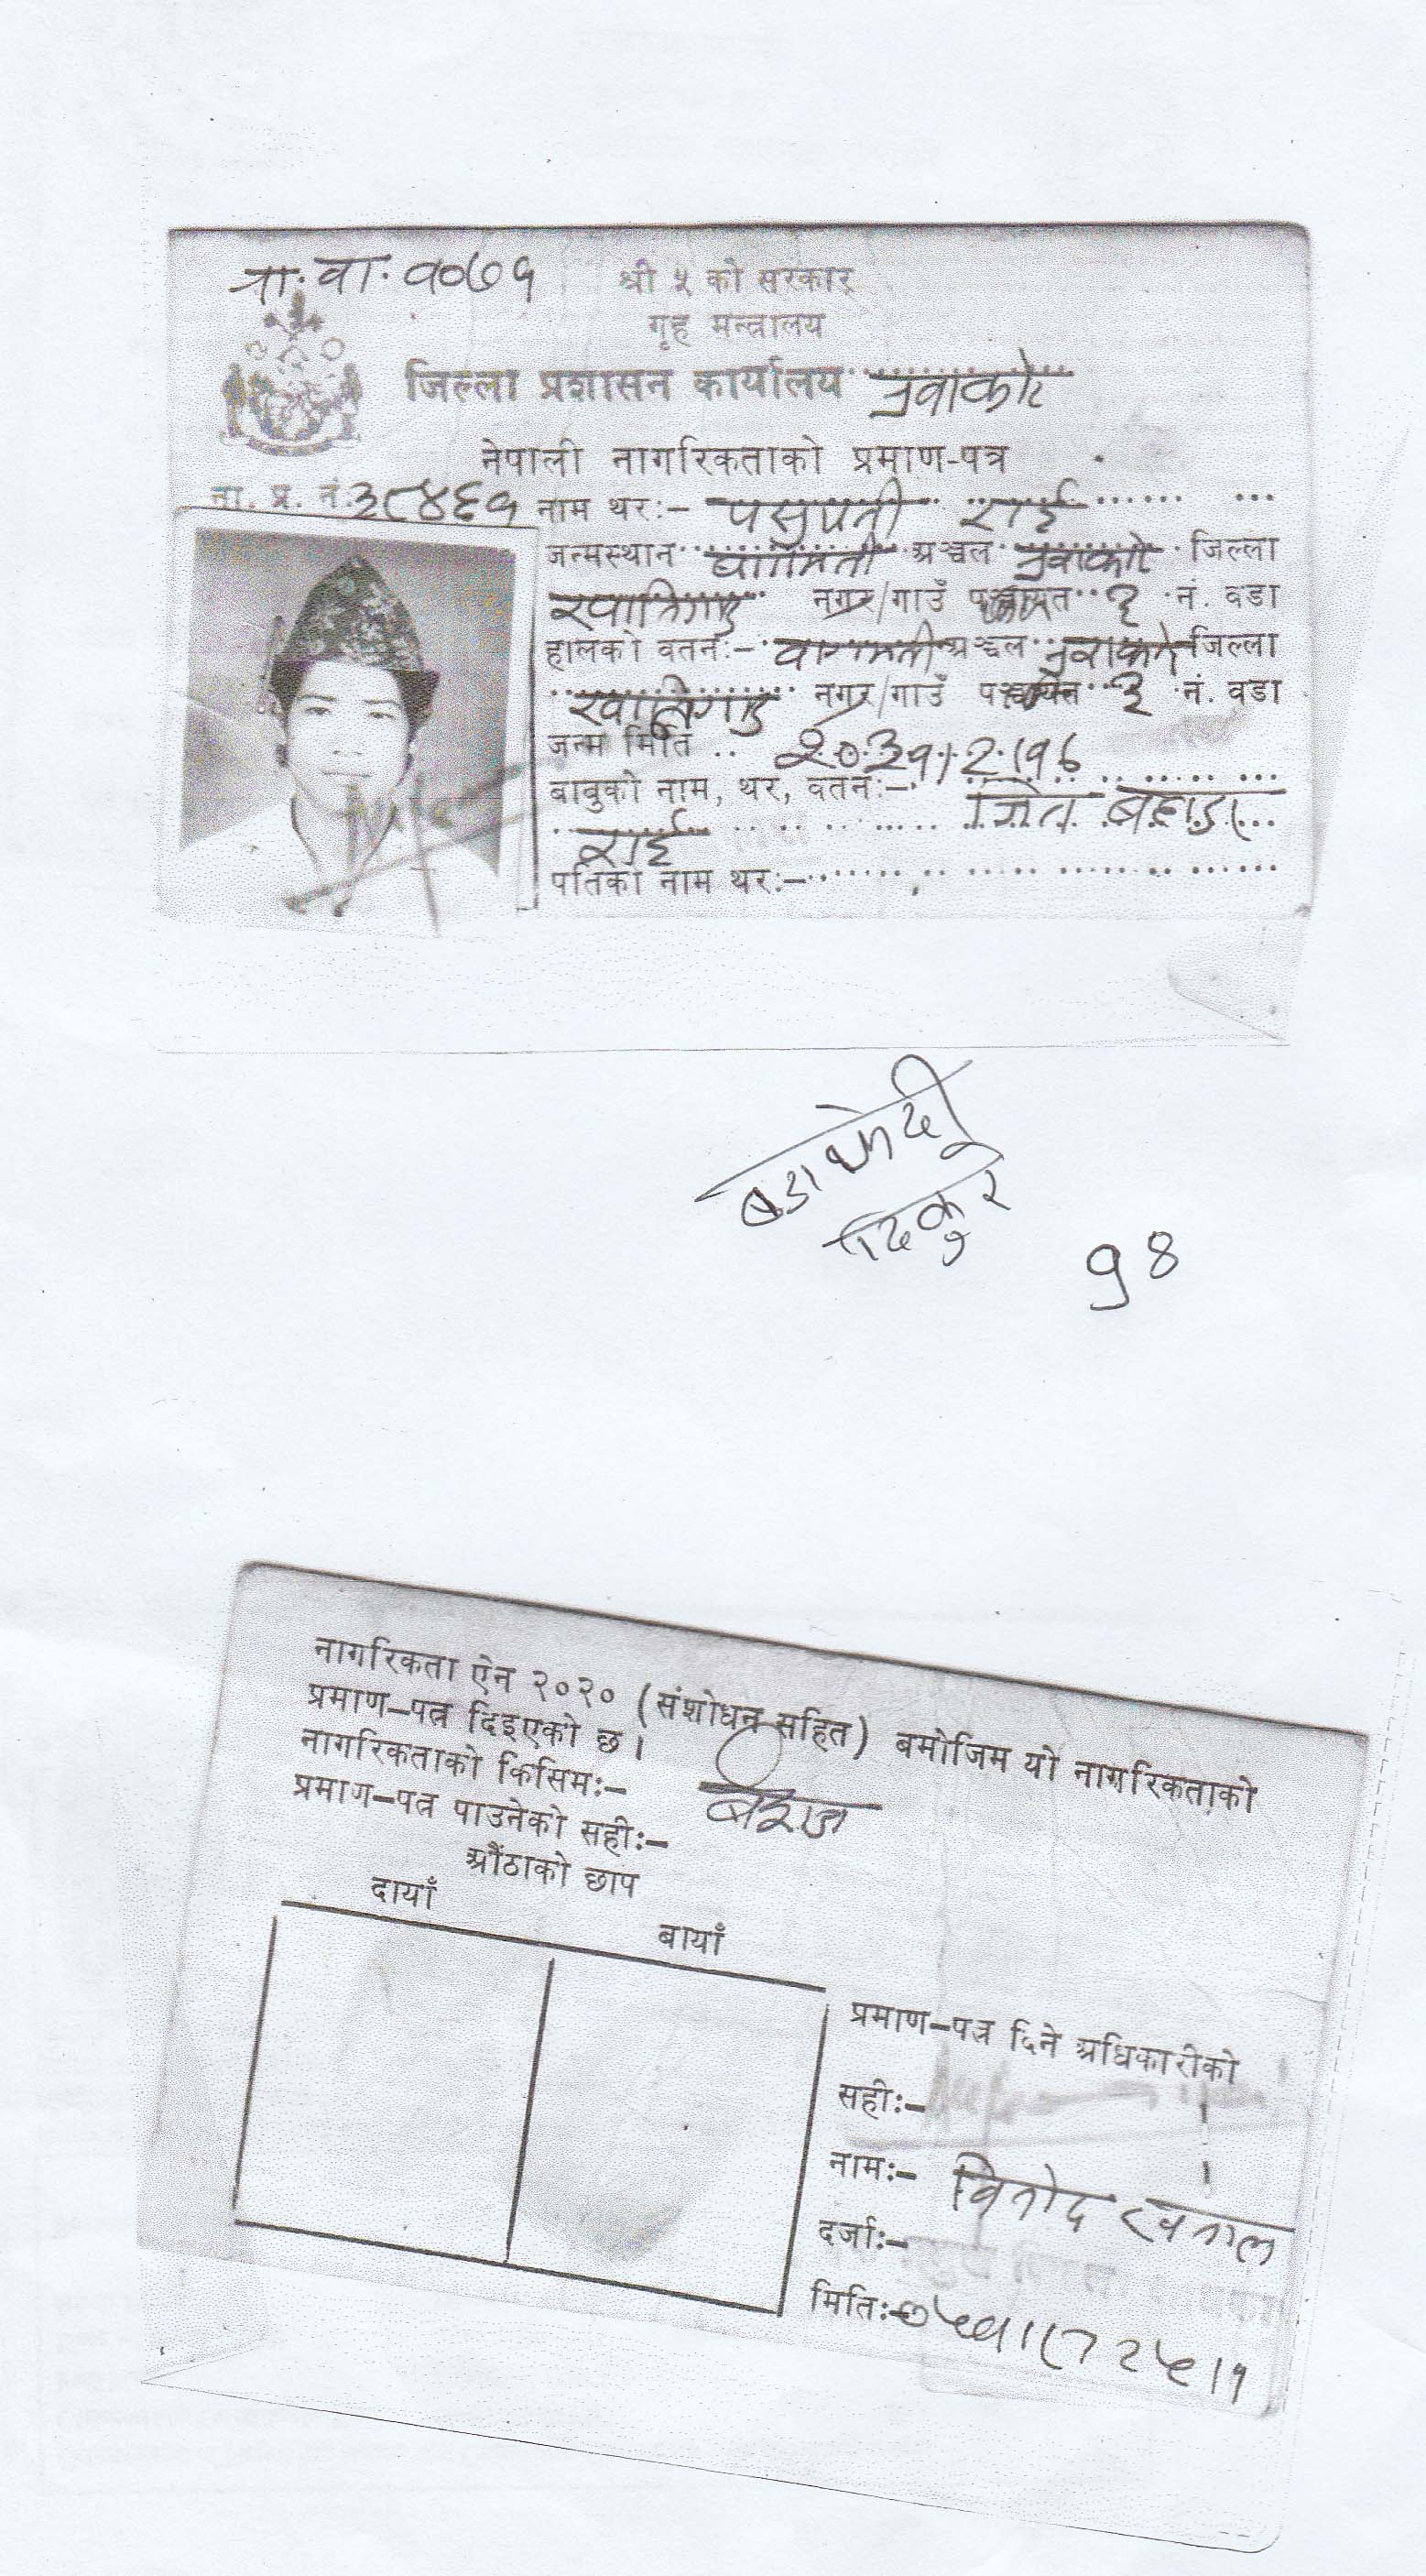 रा. वा. १०७१
श्री ५ को सरकार
गृह मन्त्रालय
जिल्ला प्रशासन कार्यालय नुवाकोट
नेपाली नागरिकताको प्रमाण-पत्र
ना. प्र. नं. ३८४६१ नाम थर:- पसुपती राई
जन्मस्थान बागमती अञ्चल नुवाकोट जिल्ला
नगर/गाउँ पञ्चायत ३ नं. वडा
हालको वतन:- बागमती अञ्चल नुवाकोट जिल्ला
नगर/गाउँ पञ्चायत ३ नं. वडा
जन्म मिति २०३१।२।१६
बाबुको नाम, थर, वतन:- जित बहादुर
राई
पतिको नाम थर:-
१४
नागरिकता ऐन २०२० (संशोधन सहित) बमोजिम यो नागरिकताको
प्रमाण-पत्र दिइएको छ।
नागरिकताको किसिम:- वंशज
प्रमाण-पत्र पाउनेको सही:-
औंठाको छाप
दायाँ बायाँ
प्रमाण-पत्र दिने अधिकारीको
सही:-
नाम:- विनोद खनाल
दर्जा:-
मिति:-